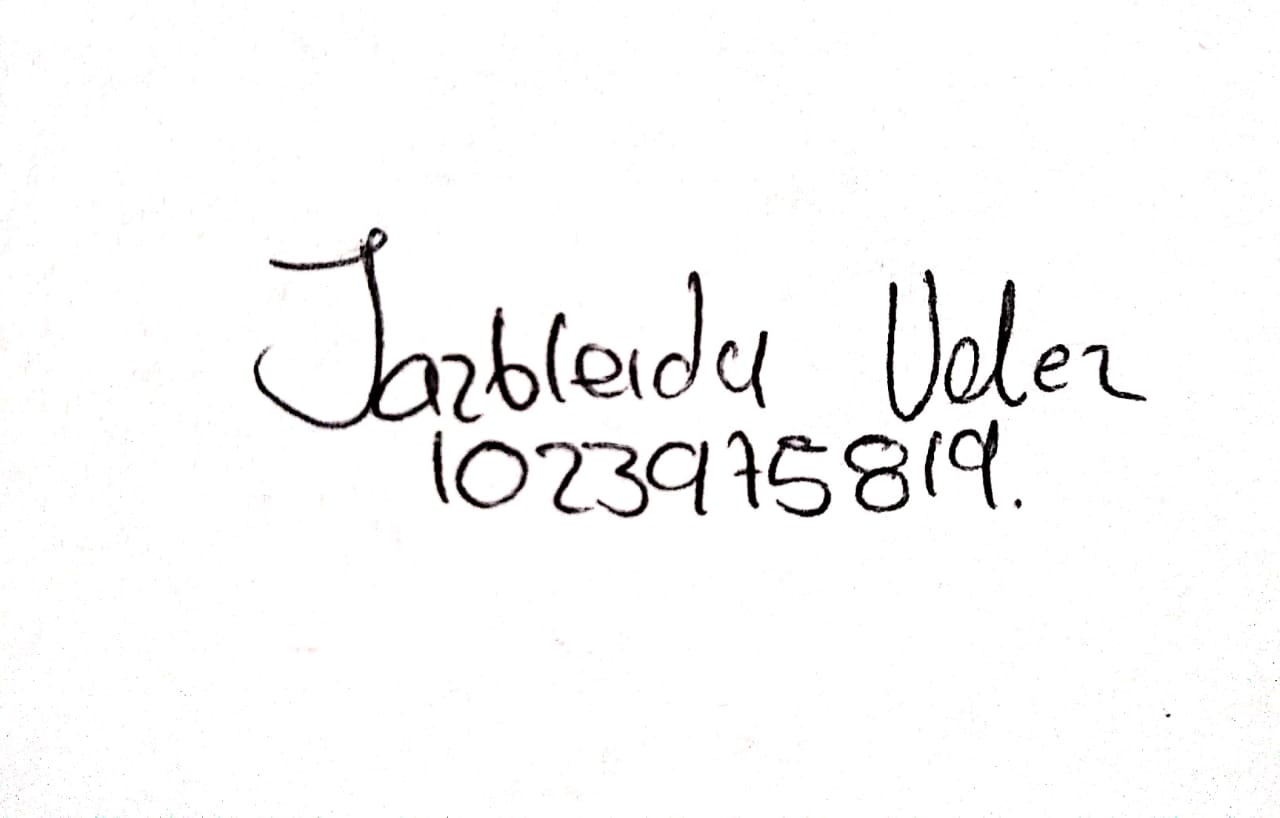 Jazbleida Velez
1023975819.